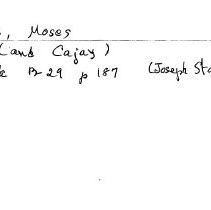 , Moses
(and Cajax)
B 29 p 187 (Joseph Sta